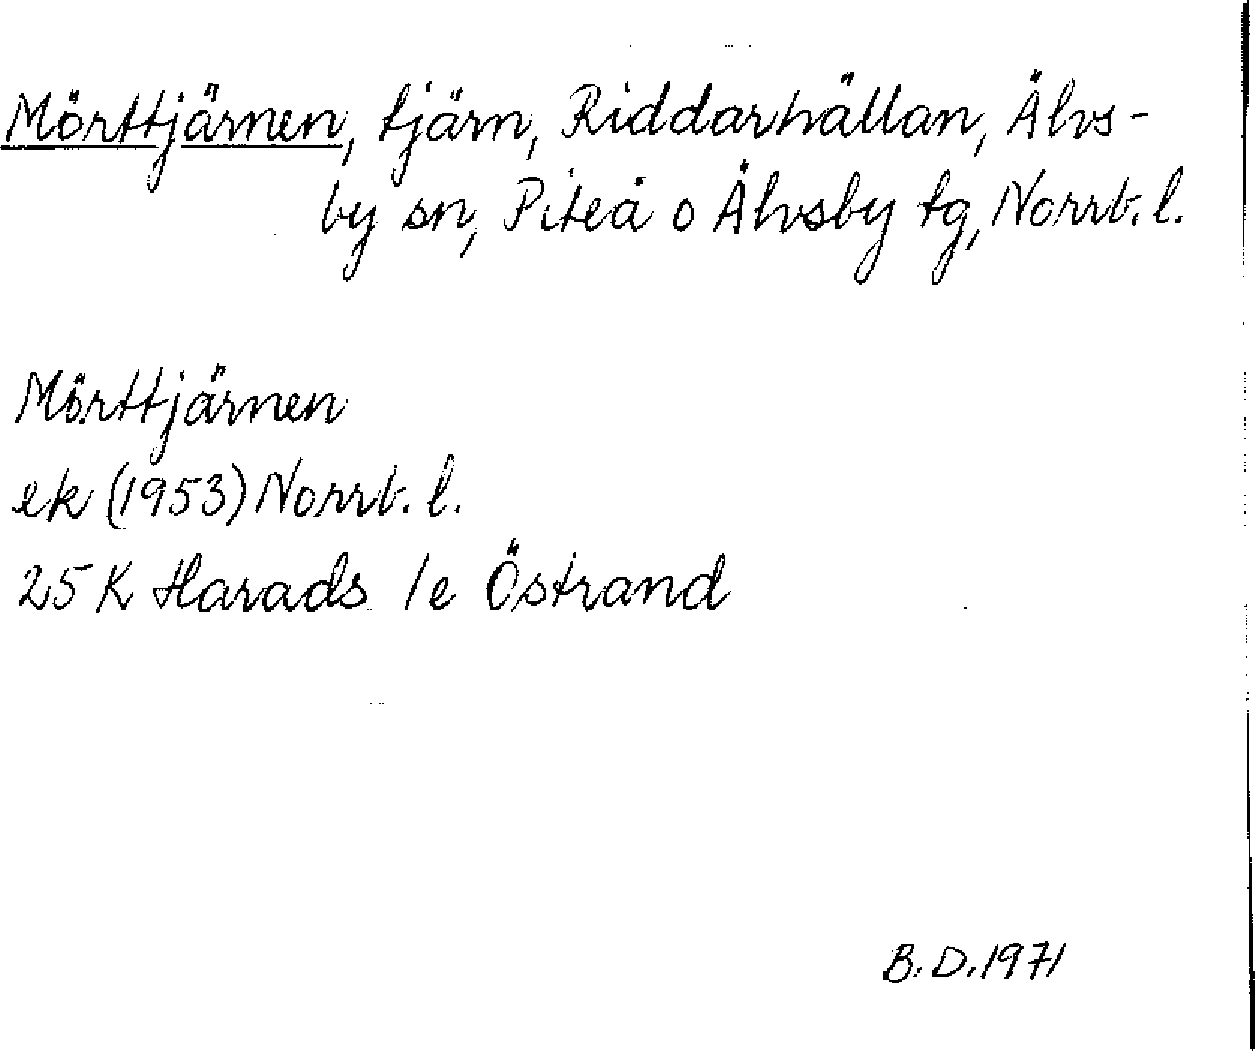 Mörttjärnen, tjärn, Riddarhällan, Älvs-
by sn, Piteå o Älvsby tg, Norrb. l.
Mörttjärnen
ek (1953) Norrb. l.
25 K Harads 1e Östrand
B. D. 1971